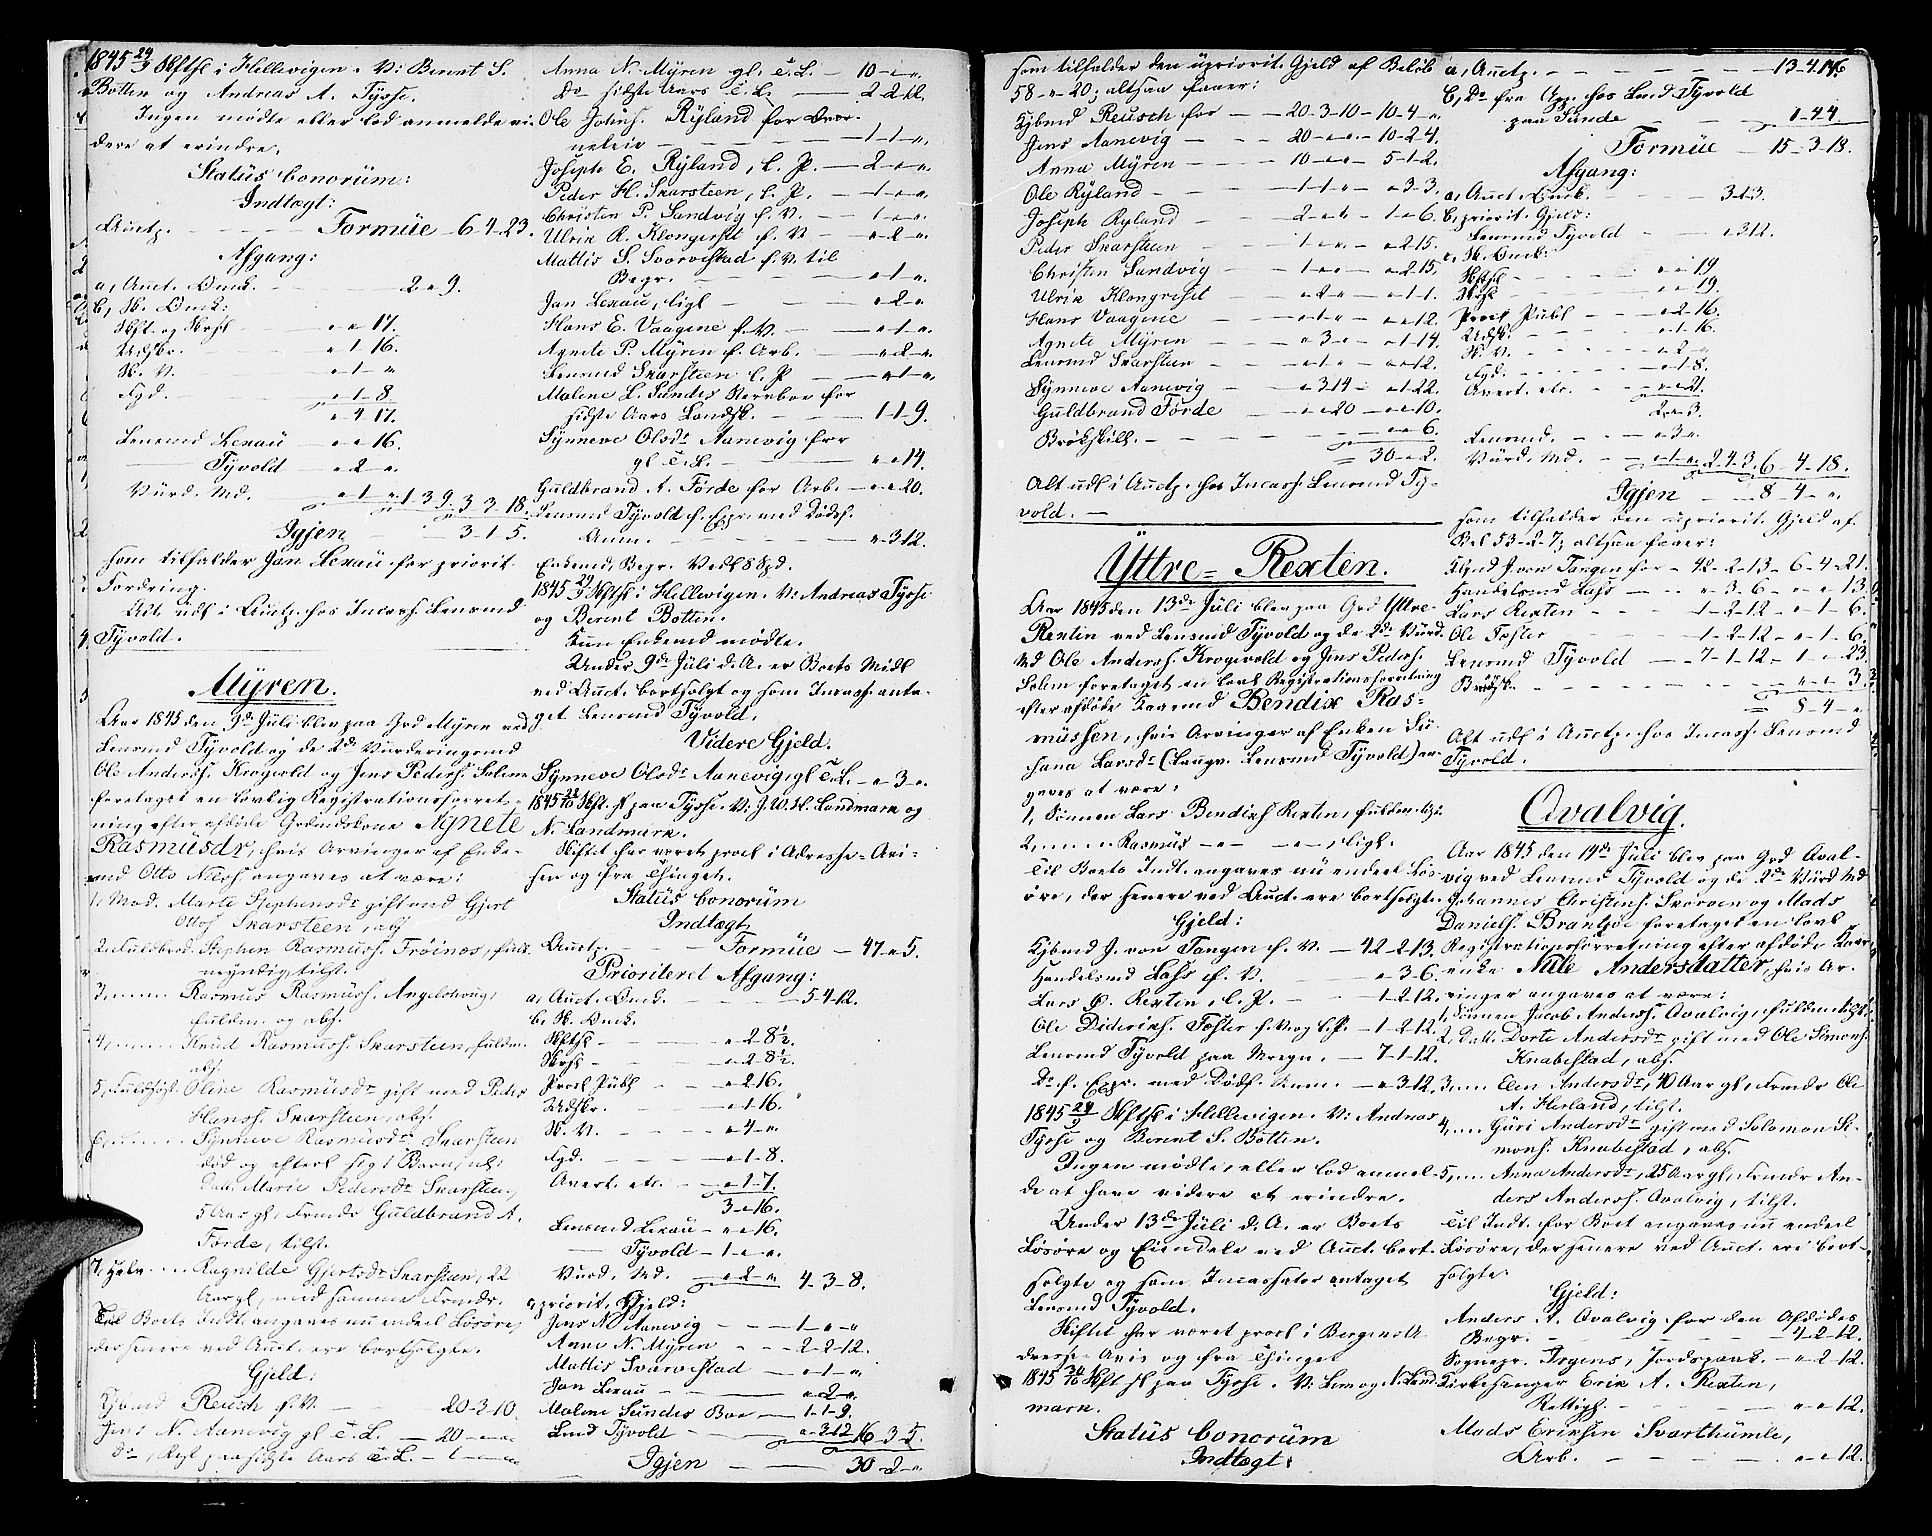 1845 24/9 Skftsl i Hellevigen. V: Berent S.
Botten og Andreas A. Tysse.
Ingen mødte eller lod anmelde vi-
dere at erindre.
Status bonorum:
Indtægt:
Auctp. - - - - Formüe 6-4-23.
Afgang:
a, Auct. Omk. - - 2-"-9.
b, Sk. Omk:
Skft. og Skrsl - - "-"-17.
Udskr. - - "-1-16.
Sk. V. - - "-1-"
Fgd. - - "-1-8
"-4-17.
Lensmd Lexau - "-"-16.
Tyvold - "-2-".
Vurd. Md. - "-1-" 1-3-9. 3-3-18.
Igjen - - 3-1-5.
som tilfalder Jan Lexau for priorit.
Fordring.
Alt udl i Auctp. hos Incass. Lensmd
Tyvold.
Myren.
Aar 1845 den 9de Juli blev paa Grd Myren ved
Lensmd Tyvold og de 2de Vurderingsmd
Ole Anderss. Krogevold og Jens Peders. Solem
foretaget en lovlig Registrationsforret-
ning efter afdøde Grdmdskone Agnete
Rasmusdr, hvis Arvinger af Enke-
md Otto Nilss. angaves at være:
1, Mod. Marte Stephensdr gift med Gjert
Ottos. Skarsteen, abs
2, Fuldbrod. Stephen Rasmuss. Frøinæs, fuld-
myndig, tilst.
3, " Rasmus Rasmuss. Angelskoug,
fuldm. og abs.
4, " Knud Rasmuss. Skarsteen, fuldm.
abs.
5, Fuldsøst. Oline Rasmusdr gift med Peder
Hanss. Skarsteen, abs.
6, " Synneve Rasmusdr Skarsteen
død og efterl. sig 1 Barn, nl:
Dat. Marie Pedersdr Skarsteen,
5 Aar gl, Frmdr Guldbrand A.
Førde, tilst.
7, Halv " Ragnilde Gjertsdr Skarsteen, 22
Aar gl, med samme Frmdr.
Til Boets Indt. angaves nu endeel Løsøre,
der senere ved Auct. ere bortsolgte.
Gjeld:
Kjbmd Reusch f. V. - 20-3-10.
Jens N. Aanevig gl T. L. - 20-"-"
do, Rest paa sidste Aars T. L. - 1-"-"
Anna N. Myren gl. T. L. - 10-"-".
Do sidste Aars T. L. - 2-2-12.
Ole Johns. Ryland for Qvær-
neleie - - - 1-1-".
Joseph E. Ryland, l. P. - 2-"-"
Peder H. Skarsteen, l. P. - 1-"-"
Christen P. Sandvig f. V. - 1-"-".
Ulrik R. Klongerset f. V. - "-2-".
Mattis S. Svorvestad f. V. til
Begr. - - "-1-".
Jan Lexau, ligl - - "-2-".
Hans E. Vaagene f. V. - "-1-".
Agnete P. Myren f. Arb. - "-2-"
Lensmd Skarsteen l. P. - "-1-".
Malene L. Sundes Stervboe for
sidste Aars Landsk. - 1-1-9.
Synneve Olsdr Aanevig for
gl T. L. - - "-"-14.
Guldbrand A. Førde for Arb. - "-"-20.
Lensmd Tyvold f. Expr. med Dødsf.
Anm. - - - "-3-12.
Enkemd, Begr. Vedl 8 Spd.
1845 24/9 Skftsl i Hellevigen. V: Andreas Tysse
og Berent Botten.
Kun Enkemd mødte.
Under 9de Juli d. A. er Boets Midl
ved Auct. bortsolgt og som Incass. anta-
get Lensmd Tyvold.
Videre Gjeld.
Synneve Olsdr Aanevig, gl T. L. - "-3-".
1845 28/10 Skft. sl paa Tysse. V: J. W. H. Landmark og
N. Landmark.
Skiftet har været procl i Adresse-Avi-
sen og fra Thinget.
Status bonorum
Indtægt
Auctp. - - Formüe - 47-"-5.
Prioriteret Afgang:
a, Auct. Omk. - - 5-4-12.
b, Sk. Omk.
Skftsl - - "-2-8½.
Skrsl - - "-2-8½.
Procl Publ - - "-2-16.
Udskr. - - "-1-16.
Sk. V. - - "-4-"
Fgd. - - "-1-8.
Avert. etc. - - "-1-7.
3-"-16.
Lensmd Lexau - "-"-16.
Tyvold - 1-"-".
Vurd. Md. - "-2-" 4-3-8.
c, priorit. Gjeld:
Jens N. Aanevig - - 1-"-"
Anne N. Myren - - 2-2-12.
Mattis Svorvestad - "-1-"
Jan Lexau - "-2-".
Malene Sundes Boe - 1-1-9.
Lmd Tyvold - "-3-12 16-3-5.
Igjen - - 30-2-"
som tilfalder den upriorit. Gjeld af Beløb
58-"-20; altsaa faaer:
Kjbmd Reusch for - - 20-3-10 - 10-4-"
Jens Aanevig - - 20-"-" - 10-2-4.
Anna Myren - - 10-"-" - 5-1-2.
Ole Ryland - - 1-1-" - "-3-3.
Joseph Ryland - - 2-"-" - 1-"-6.
Peder Skarsteen - - 1-"-" - "-2-15.
Christen Sandvig - - 1-"-" - "-2-15.
Ulrik Klongreset - "-2-" - "-1-1.
Hans Vaagene - - "-1-" - "-"-12.
Agnete Myren - - "-3-" - "-1-14.
Lensmd Skarsteen - - "-1-" - "-"-12.
Synneve Aanevig - "-3-14 - "-1-22.
Guldbrand Førde - "-"-20 - "-"-10.
Brøkskill. - - - "-"-6.
= 30-"-2.
Alt udl i Auctp. hos Incass. Lensmd Ty-
vold. -
Yttre-Rexten.
Aar 1845 den 13de Juli blev paa Grd Yttre-
Rexten ved Lensmd Tyvold og de 2de Vurd.
Md Ole Anderss. Krogevold og Jens Peders.
Solem foretaget en lovl Registrationsforretning
efter afdøde Kaarmd Bendix Ras-
mussen, hvis Arvinger af Enken Su-
sana Larsdr (Laugv. Lensmd Tyvold) an-
gaves at være:
1, Sønnen Lars Bendixs. Rexten, fuldm. tilst.
2, " Rasmus -"- -"-, ligl.
Til Boets Indt. angaves nu endeel Løs-
øre, der senere ved Auct. ere bortsolgte.
Gjeld:
Kjbmd J. von Tangen f. V. - 42-2-13.
Handelsmd Lass f. V. - - "-3-6.
Lars P. Rexten, l. P. - - 1-2-12.
Ole Dideriks. Fæster f. V. og l. P. - 1-2-12.
Lensmd Tyvold paa Mregn. - 7-1-12.
Do f. Expr. med Dødsf. Anm. - "-3-12.
1845 24/9 Skftsl i Hellevigen. V: Andreas
Tysse og Berent S. Botten.
Ingen mødte, eller lod anmel-
de at have videre at erindre.
Under 13de Juli d. A. er Boets
Løsøre og Eiendele ved Auct. bort-
solgte og som Incassator antaget
Lensmd Tyvold.
Skiftet har været procl i Bergens A-
dresse-Avis og fra Thinget
1845 28/10 Skft sl paa Tysse. V: Lem og N. Land
mark.
Status bonorum
Indtægt:
a, Auctp. - - - - 13-4-14
146
b, Do fra Opg. hos Lmd Tyvold
paa Sunde - - 1-4-4
Formüe - 15-3-18.
Afgang:
a, Auct. Omk. - - 3-1-3.
b, priorit. Gjeld:
Lensmd Tyvold - - "-3-12.
c, Sk. Omk:
Skftsl - - "-"-19
Skrsl - - "-"-19.
Procl Publ - - "-2-16.
Udsk. - - "-1-16.
Sk. V. - - "-2-"
Fgd. - - "-1-8.
Avert. etc. - - "-"-21.
2-"-3.
Lensmd. - - "-3-".
Vurd. Md. - "-1-" 2-4-3. 6-4-18.
Igjen - - 8-4-"
som tilfalder den upriorit. Gjeld af
Bel 53-2-7; altsaa faaer:
Kbmd J. von Tangen for - 42-2-13 - 6-4-21.
Handelsmd Lass - - "-3-6 - "-"-13.
Lars Rexten - - 1-2-12 - "-1-6.
Ole Fæster - 1-2-12 - "-1-6.
Lensmd Tyvold - 7-1-12 - 1-"-23.
Brøksk. - - - "-"-3.
= 8-4-"
Alt udl i Auctp. hos Incass. Lensmd
Tyvold.
Qvalvig.
Aar 1845 den 14de Juli blev paa Grd Qval-
vig ved Lensmd Tyvold og de 2de Vurd Md
Johannes Christens. Skorven og Mads
Daniels. Brantzøe foretaget en lovl
Registrationsforretning efter afdøde Kaar-
enke Nille Andersdatter, hvis Ar-
vinger angaves at være:
1, Sønnen Jacob Anderss. Qvalvig, fuldm. tilst.
2, Datt. Dorte Andersdr gift med Ole Simons.
Knabestad, abs.
3, " Elen Andersdr, 40 Aar gl, Frmdr Ole
A. Herland, tilst.
4, " Guri Andersdr gift med Solomon Si-
mons. Knabestad, abs.
5, " Anna Andersdr, 25 Aar gl, Frmdr An-
ders Anderss. Qvalvig, tilst.
Til Indt. for Boet angaves nu endeel
Løsøre, der senere ved Auct. ere bort-
solgte.
Gjeld:
Anders A. Qvalvig for den Afdødes
Begr. - - - 4-2-12.
Sognepr. Irgens, Jordspaak. - "-2-12.
Kirkesanger Erik A. Rexten,
Rettigh. - - "-"-12.
Mads Eriksen Svarthumle,
Arb. - - - "-"-12.